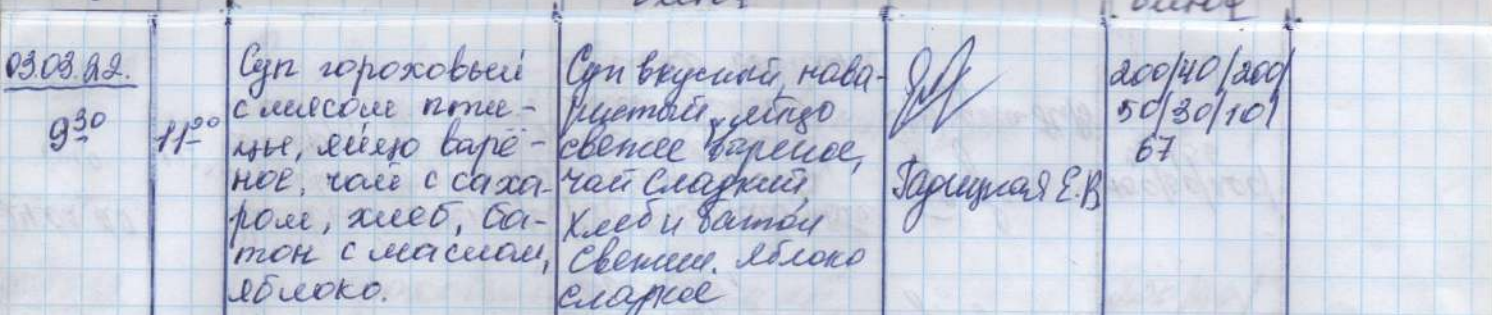 03.03.22.
9 30
11 20
Суп гороховый
с мясом пти-
цы, яйцо варё-
ное, чай с саха-
ром, хлеб, ба-
тон с маслом,
яблоко.
Суп вкусный, нава-
ристый, яйцо
свежее вареное,
чай сладкий,
хлеб и батон
свежий. Яблоко
сладкое
Е.В
200/40/200/
50/30/10/
67